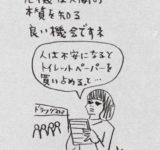 本質を知る
良い機会ですネ
人は不安になると
トイレットペーパーを
買い占めると…
ドラッグスト